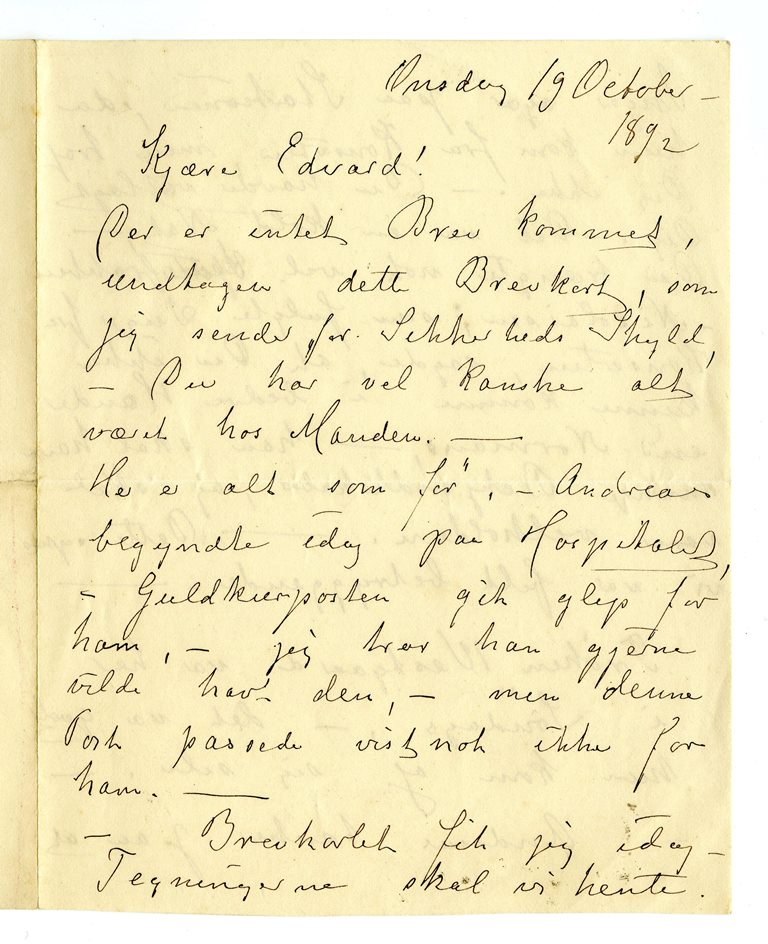 Onsdag 19 October –
1892
Kjære Edvard!
Der er intet Brev kommet,
undtagen dette Brevkort, som
jeg sender for Sikkerheds Skyld,
– Du har vel kanske alt
været hos Manden. —
He er alt som før, – Andreas
begyndte idag paa Hospitalet,
– Guldkurposten gik glip for
ham, – jeg tror han gjerne
vilde hav' den, – men denne
Post passede vistnok ikke for
ham. —
– Brevkortet fik jeg idag –
Tegningerne skal vi hente.